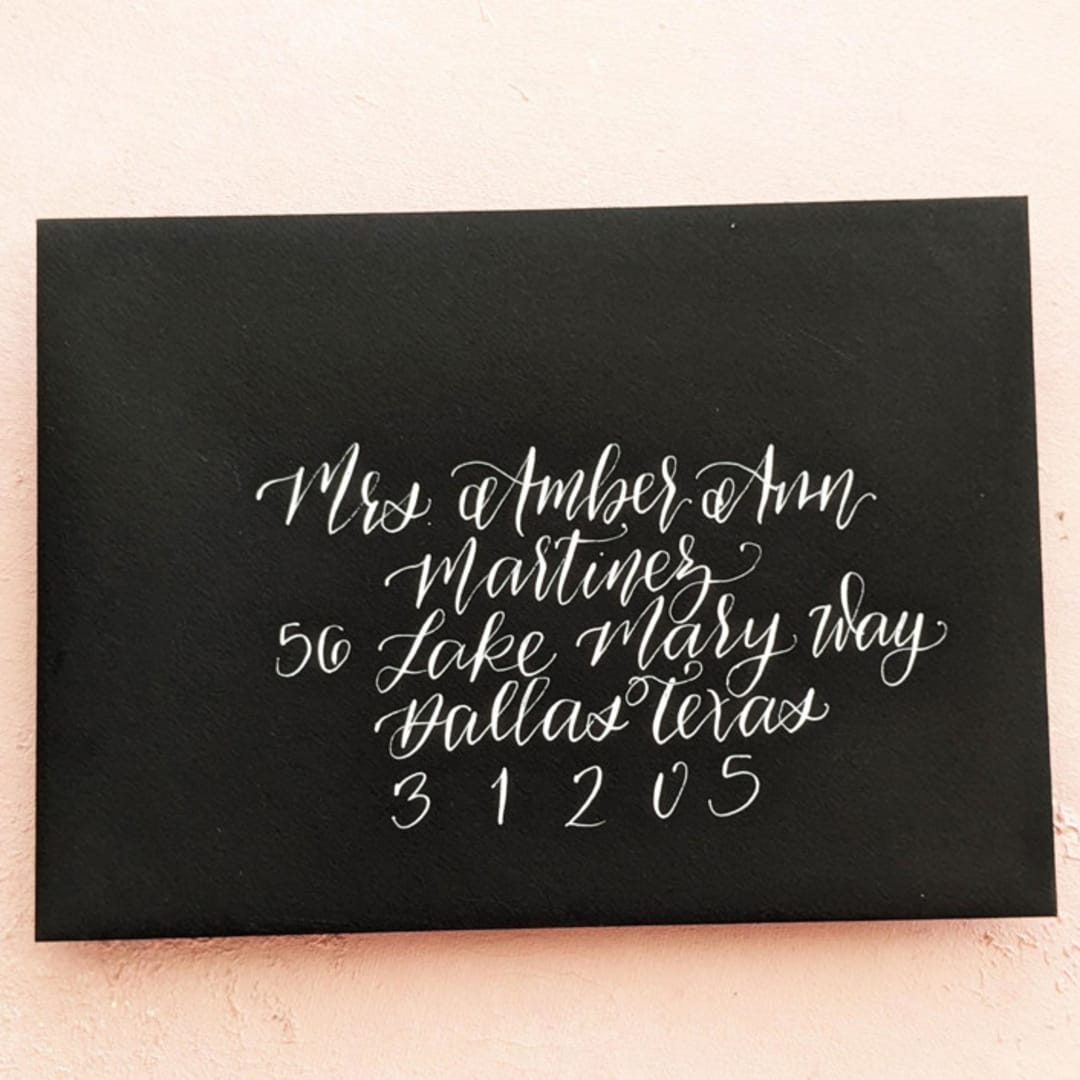 Mrs Amber Ann
Martinez
56 Lake Mary Way
Dallas Texas
31205